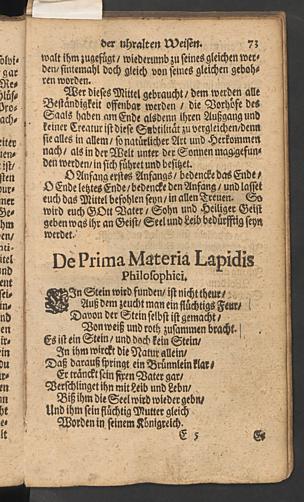 der uhralten Weisen. 73
walt ihm zugefügt / wiederumb zu seines gleichen wer-
den / sintemahl doch gleich von seines gleichen geboh-
ren worden.
Wer dieses Mittel gebraucht / dem werden alle
Beständigkeit offenbar werden / die Vorhöfe des
Saals haben am Ende alsdenn ihren Außgang und
keiner Creatur ist diese Subtilität zu vergleichen / denn
sie alles in allem / so natürlicher Art und Herkommen
nach / als in der Welt unter der Sonnen mag gefun-
den werden / in sich führet und besitzet.
O Anfang erstes Anfangs / bedencke das Ende /
O Ende letztes Ende / bedencke den Anfang / und lasset
euch das Mittel befohlen seyn / in allen Treuen. So
wird euch GOtt Vater / Sohn und Heiliger Geist
geben was ihr an Geist / Seel und Leib bedürfftig seyn
werdet.
De Prima Materia Lapidis
Philosophici.
EIn Stein wird funden / ist nicht theur /
Auß dem zeucht man ein flüchtigs Feur /
Davon der Stein selbst ist gemacht /
Von weiß und roth zusammen bracht.
Es ist ein Stein / und doch kein Stein /
In ihm wirckt die Natur allein /
Daß darauß springt ein Brünnlein klar /
Er tränckt sein fixen Vater gar /
Verschlinget ihn mit Leib und Lebn /
Biß ihm die Seel wird wieder gebn /
Und ihm sein flüchtig Mutter gleich
Worden in seinem Königreich.
E 5 Es